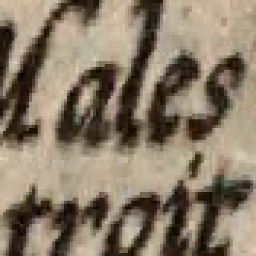 Males
troit